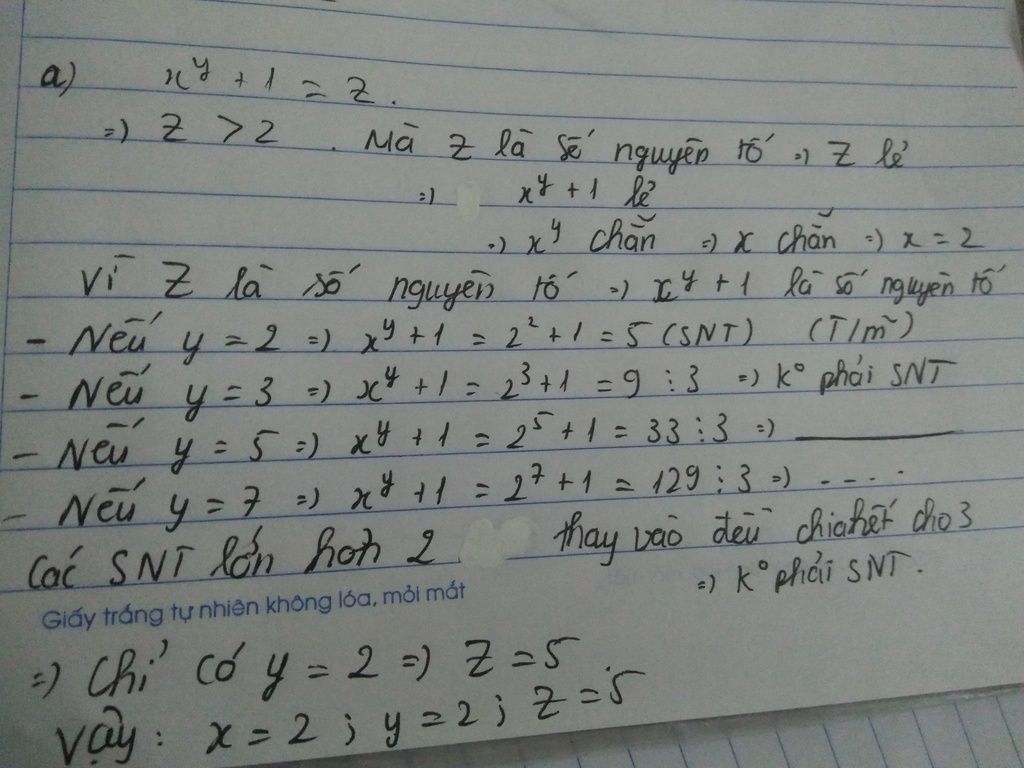 a) x^y + 1 = z.
=) z > 2 . Mà z là số nguyên tố => z lẻ
=) x^y + 1 lẻ
=) x^y chẵn =) x chẵn =) x = 2
Vì z là số nguyên tố =) x^y + 1 là số nguyên tố
- Nếu y = 2 =) x^y + 1 = 2² + 1 = 5 (SNT) (T/m)
- Nếu y = 3 =) x^y + 1 = 2³ + 1 = 9 ⋮ 3 =) k° phải SNT
- Nếu y = 5 =) x^y + 1 = 2⁵ + 1 = 33 ⋮ 3 =) ______
- Nếu y = 7 =) x^y + 1 = 2⁷ + 1 = 129 ⋮ 3 =) ----
Các SNT lớn hơn 2 thay vào đều chia hết cho 3
=) k° phải SNT.
Giấy trắng tự nhiên không lóa, mỏi mắt
=) Chỉ có y = 2 =) z = 5
Vậy: x = 2 ; y = 2 ; z = 5